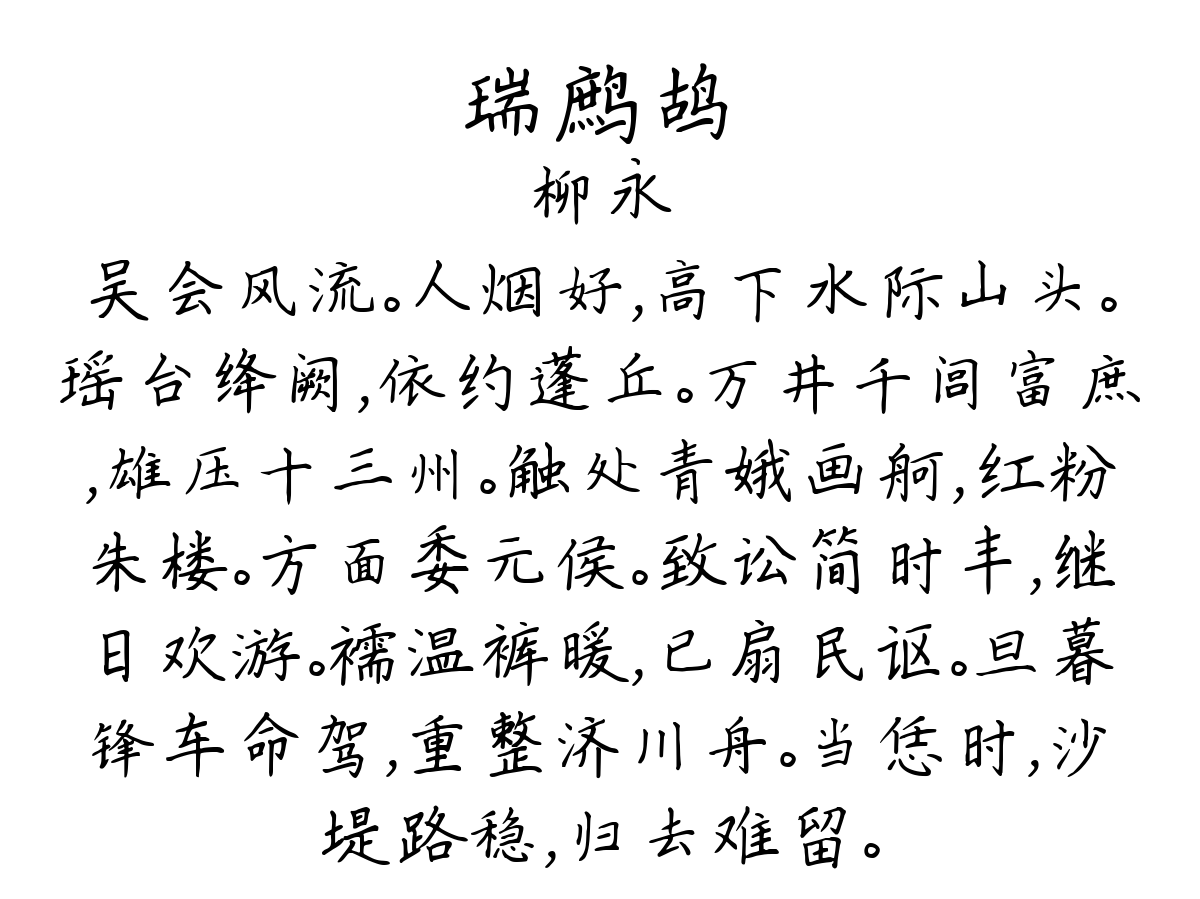 瑞鹧鸪
柳永
吴会风流。人烟好,高下水际山头。
瑶台绛阙,依约蓬丘。万井千闾富庶
,雄压十三州。触处青娥画舸,红粉
朱楼。方面委元侯。致讼简时丰,继
日欢游。襦温裤暖,已扇民讴。旦暮
锋车命驾,重整济川舟。当恁时,沙
堤路稳,归去难留。